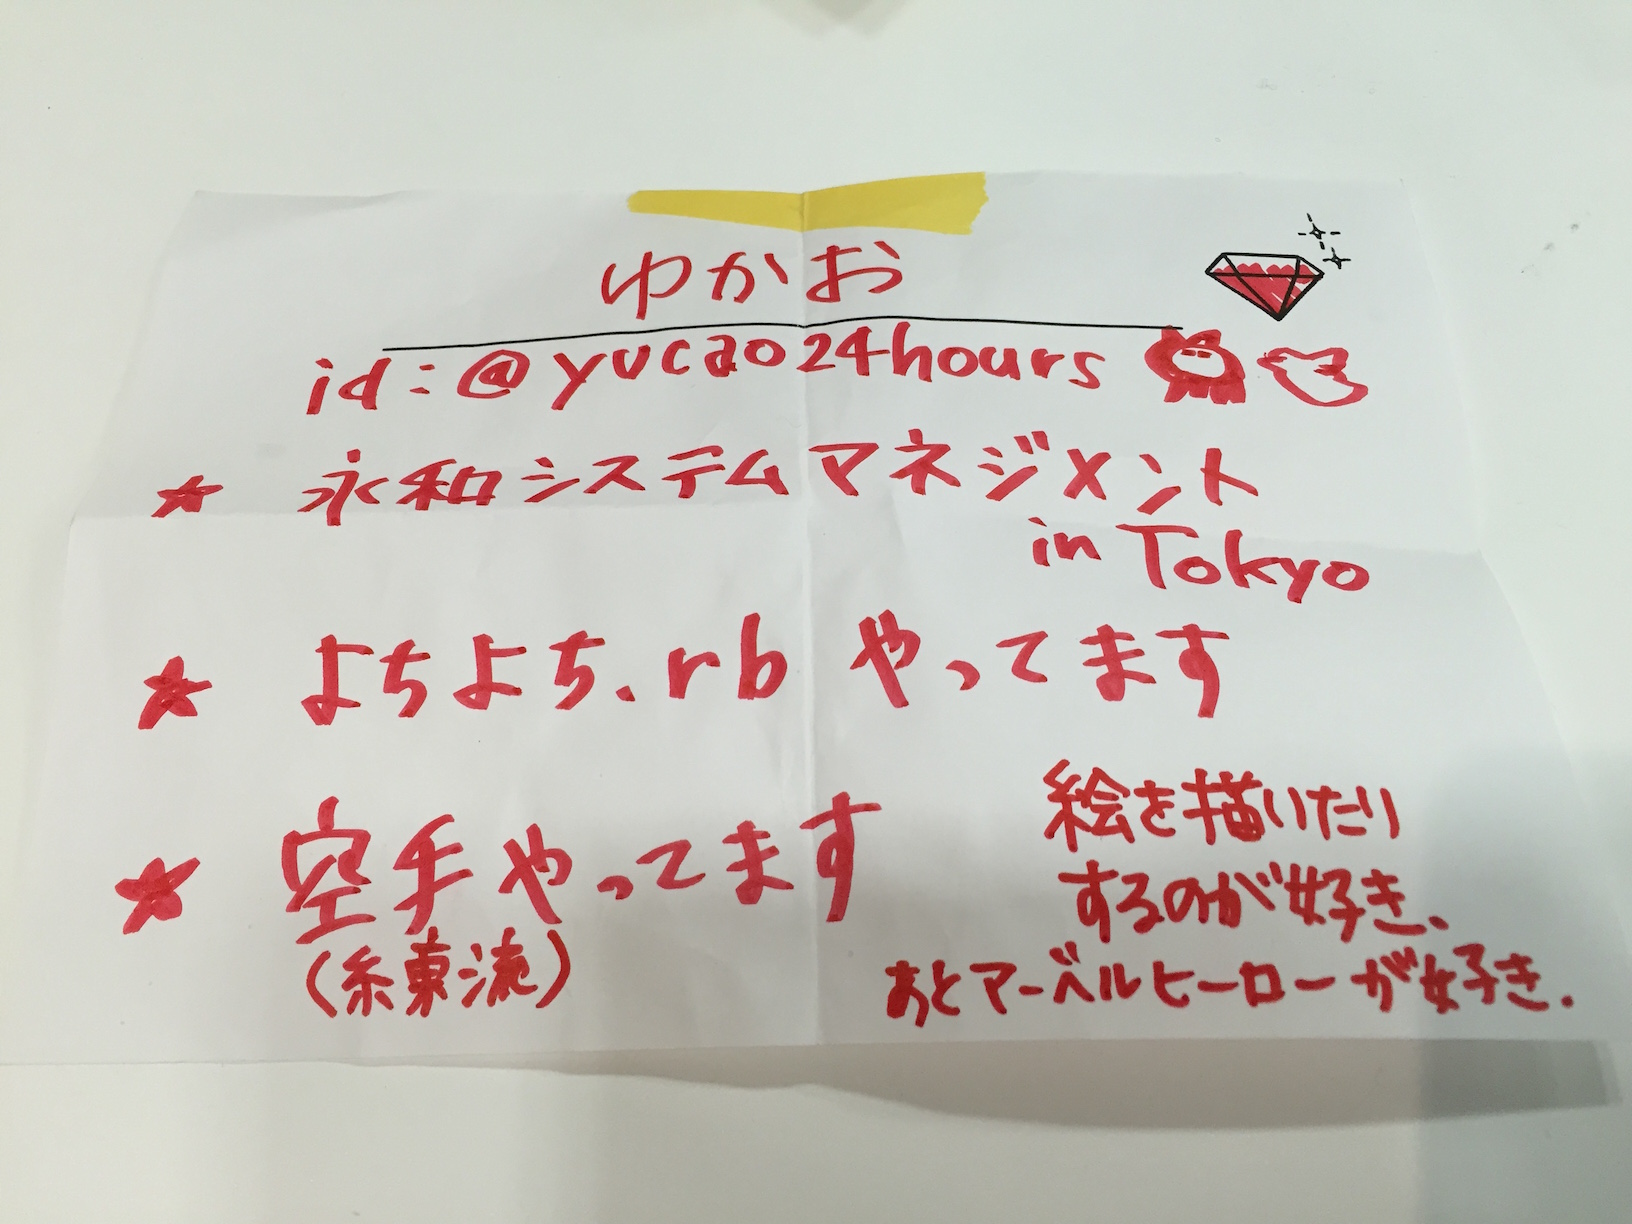 ゆかお
id:@yucao24hours
★ 永和システムマネジメント
in Tokyo
★ よちよち.rb やってます
★ 空手やってます
(糸東流)
絵を描いたり
するのが好き、
あとマーベルヒーローが好き.